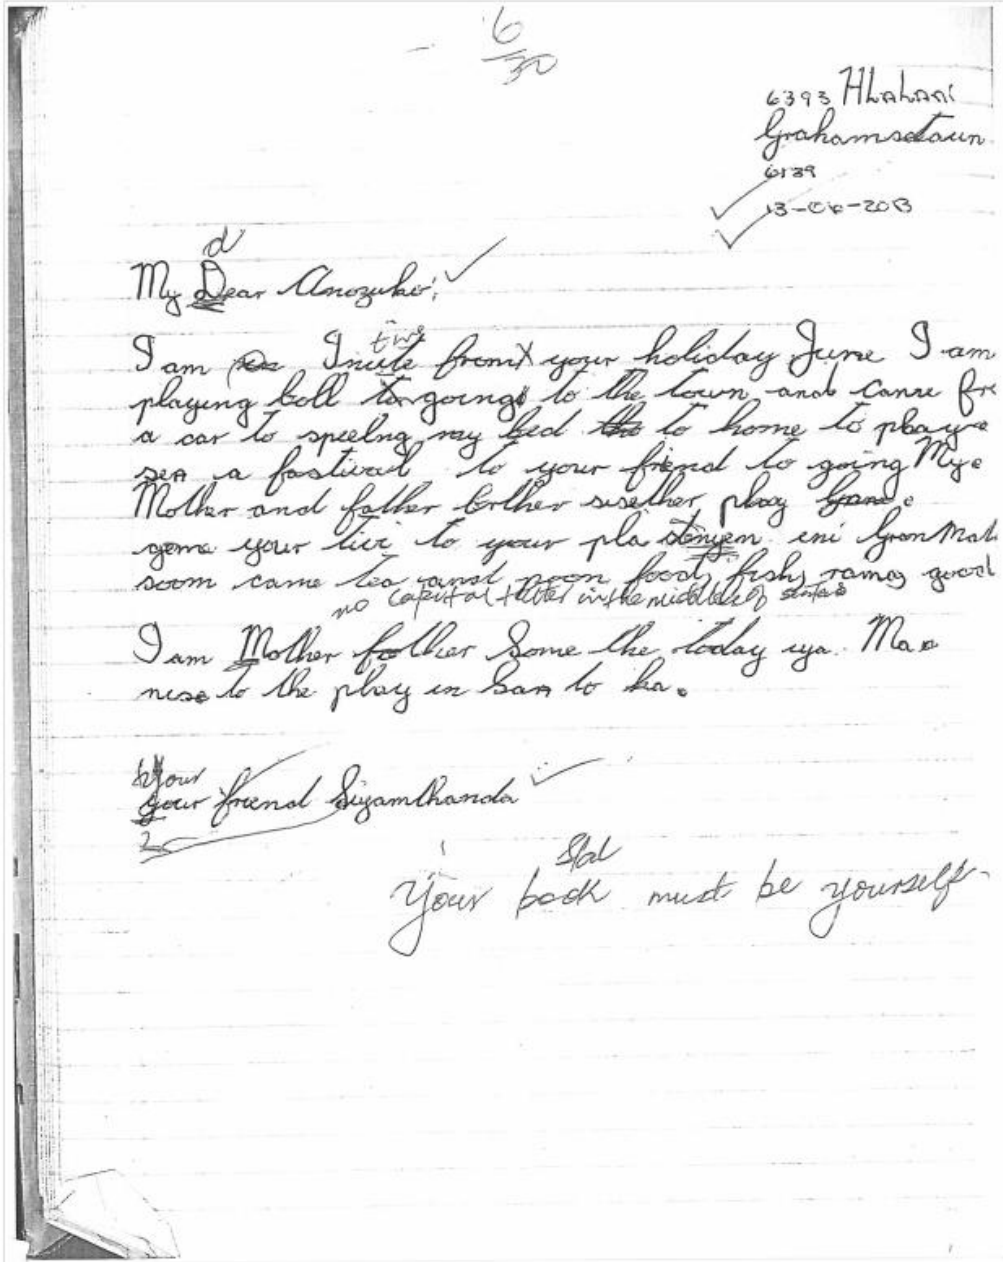 6
30
6393 Hlalani
Grahamsotown
6139
13-06-2013
d
My Dear Anozuko;
I am Invite from your holiday June I am
playing boll to going to the town and came fr
a car to speelng my bed the to home to play
sen a fastival to your friend to going My
Mother and father brther sisether play
game your to your pla ini GranMat
soom came tea and noon food, fish, rama, good
no capital letter in the middle of
I am Mother father Some the today iya. Ma
nise to the play in San to ka.
Your
your friend Siyamthanda
2
Your book must be yourself